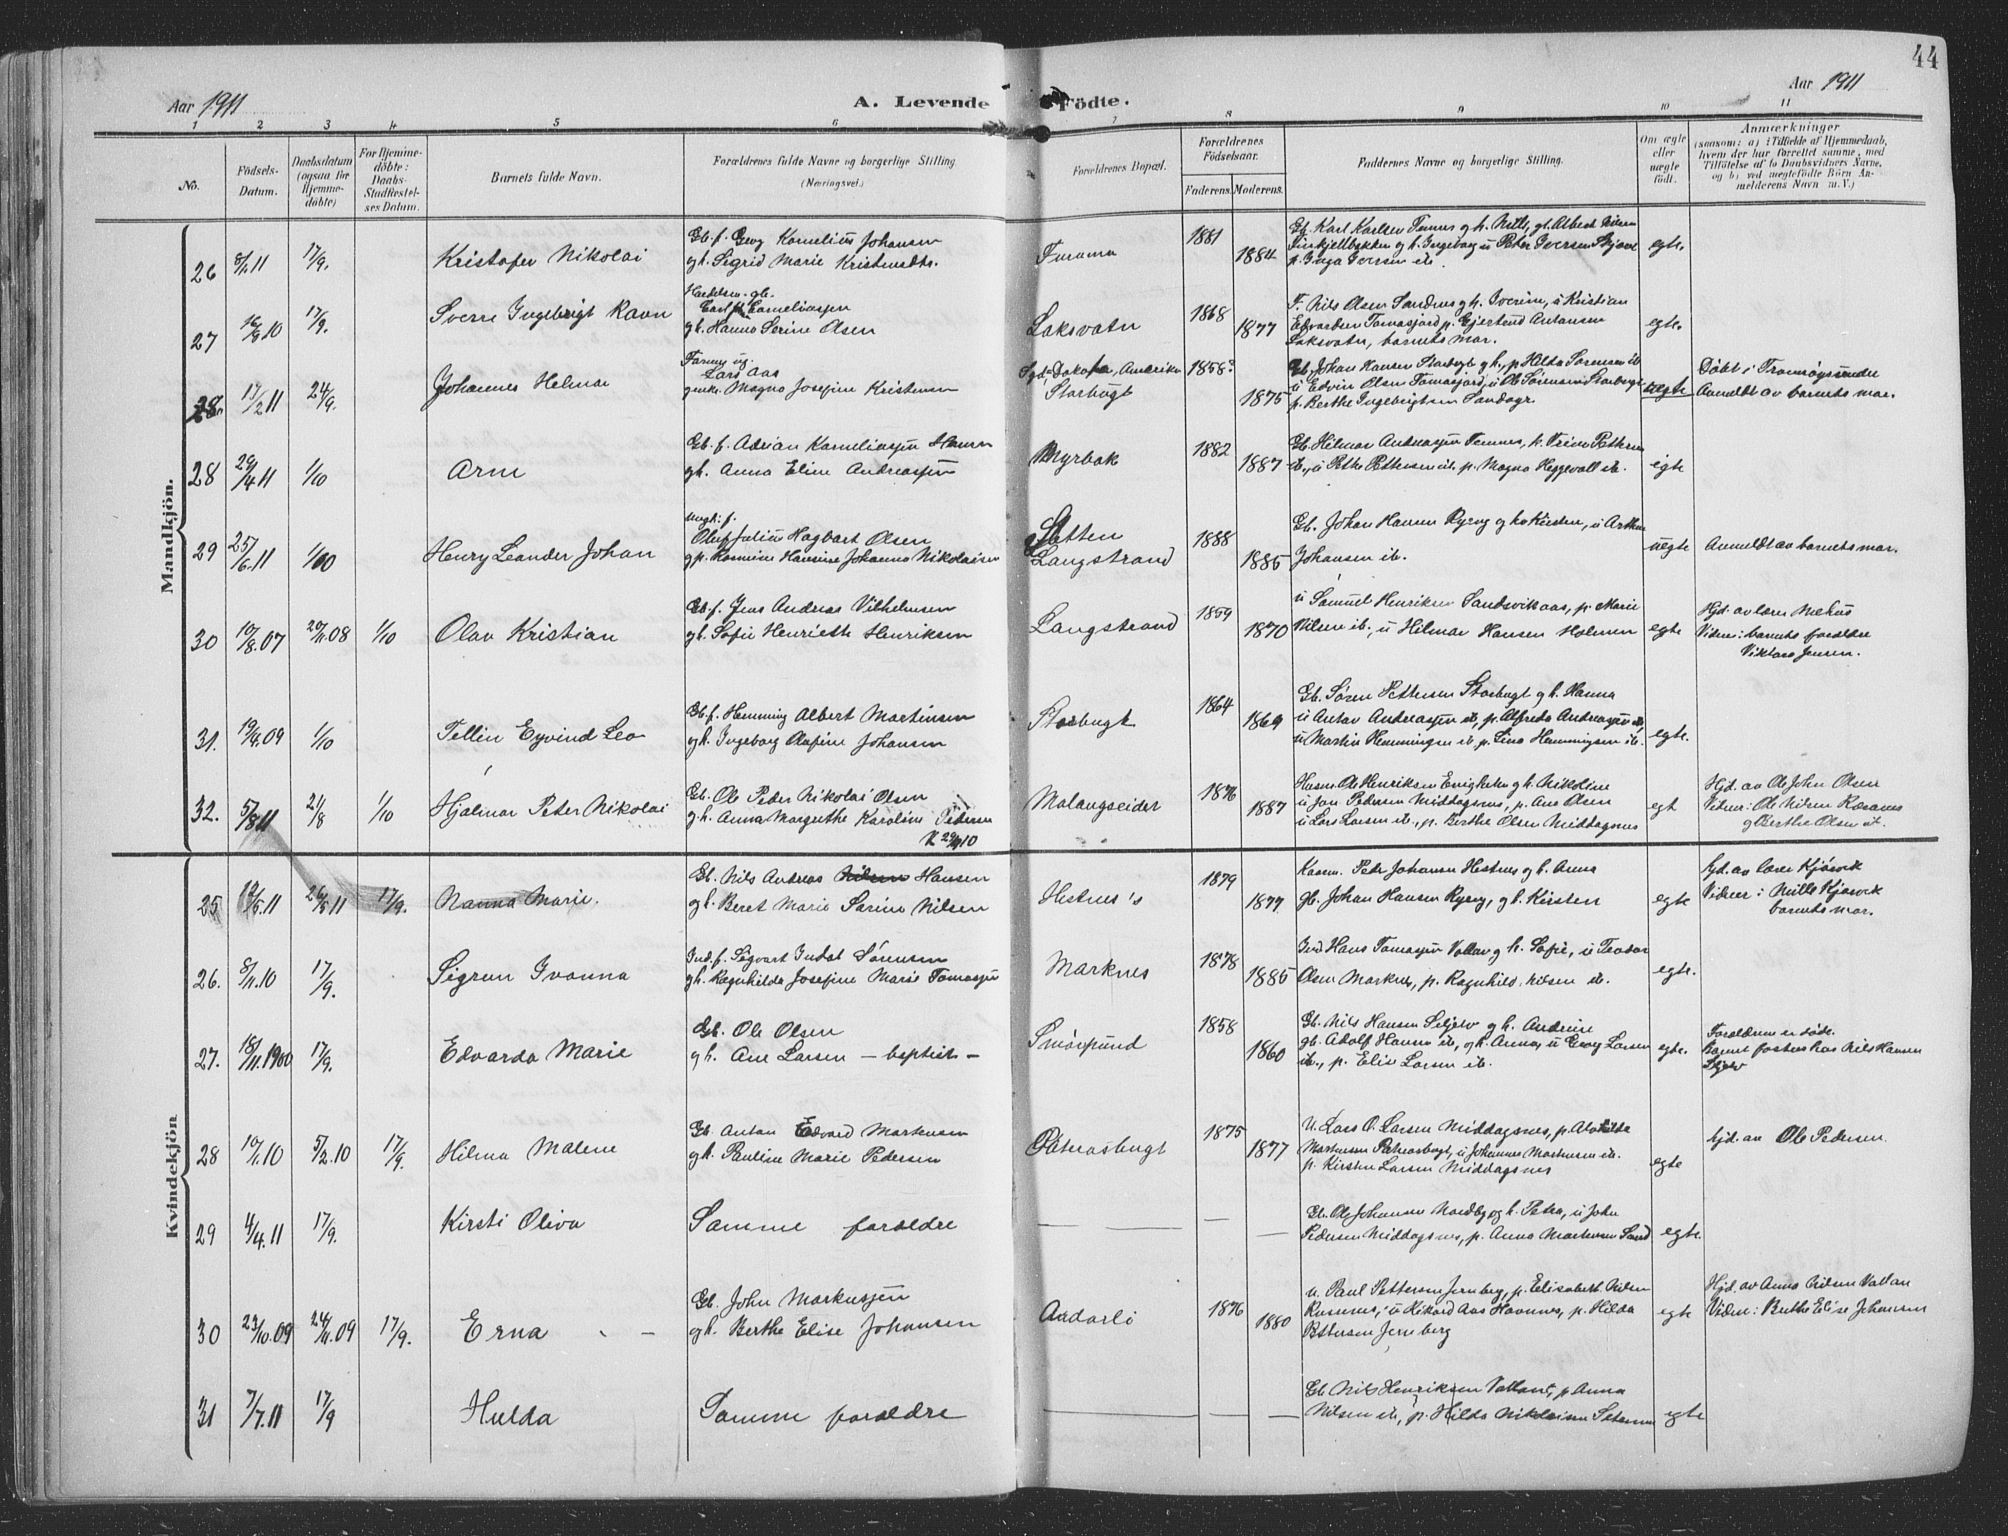 44
Aar 1911
A. Levende Födte.
Aar 1911
1 2 3 4 5 6 7 8 9 10 11
No.
Födsels-Datum.
Daabsdatum (ogsaa for Hjemme-döbte)
For Hjemme-döbte: Daabs-Stadfæstel-ses Datum.
Barnets fulde Navn.
Forældrenes fulde Navne og borgerlige Stilling.
(Næringsvei.)
Forældrenes Bopæl.
Forældrenes Födselsaar.
Faderens. Moderens.
Faddernes Navne og borgerlige Stilling.
Om ægte eller uægte födt.
Anmærkninger
(saasom: a) i Tilfælde af Hjemmedaab,
hvem der har forrettet samme, med
Tilföielse af to Daabsvidners Navne,
og b) ved uægtefödte Börn An-
melderens Navn m. V.)
Mandkjön.
26 17/9. Kristofer Nikolai
Gb. f. Georg Kornelius Johansen
gh. Sigrid Marie
1881 1884
Gb. Karl Karlsen og h.
p. Inga Iversen ib.
egte.
27 17/9. Sverre Ingebrigt Ravn
gh. Hanna Serine Olsen
Laksvatn
1868 1877
F. Nils Olsen Sandnes og h. Iverine, u Kristian
Laksvatn, barnets mor.
egte.
28. 17/2 11 24/9. Johannes Helmar
Lars Aas
Josefine
Dakota, Amerika
Storbugt
1858? 1875
Gb. Johan Hansen Storbugt gh, p. Hilda Sørensen ib
u Edvin Olsen Tomasjord, u Ole Sørensen Storbugt
p. Berthe Ingebrigtsen
uegte
Døbt i Tromsøysundet
Anmeldt av barnets mor.
28 29/4 11 1/10 Arne
Gb. f. Adrian Korneliussen Hansen
gh. Anna Elise Andreassen
Myrbak
1882 1887
Gb. Hilmar Andreassen Temnes, p. Trine Pettersen
ib., u Pettersen ib. p. Magna Heggevoll ib.
egte
29 25/6. 11 1/10 Henry Leander Johan
Ungk. f.
Oluf Julius Hagbart Olsen
gp. Hansine Johanna Nikolaisen
Sletten
Langstrand
1888 1885
Gb. Johan Hansen Ryrvg og h. Kirsten, u Arthur
Johansen ib.
uegte
Anmeldt av barnets mor.
30 10/8. 07 20/11. 08 1/10 Olav Kristian
Gb. f. Jens Andreas Vilhelmsen
gh. Sofie Henriette Henriksen
Langstrand
1859 1870
u Samuel Henriksen Sandsvikaas, p. Marie
Nilsen ib., u Hilmar Hansen Holmen
egte
Hjd. av lærer
Vidner: barnets forældre
Viktara Jensen.
31. 19/9. 09 1/10 Tellin Eyvind Leo
Gb. f. Hemming Albert Martinsen
gh. Ingeborg Olufine Johansen
Storbugt
1864 1869
Gb. Søren Pettersen Storbugt og h. Hanna
u Anton Andreassen ib, p. Alfreda Andreassen ib,
u Martin Hemmingsen ib. p. Lina Hemmingsen ib.
egte.
32. 5/8 11 21/8 1/10 Hjalmar Peter Nikolai
Gb. Ole Peder Nikolai Olsen
gh. Anna Margrethe Karoline Pedersen
Malangseidet
1876 1887
Husm. Ole Henriksen gh. Nikoline
u Jon Pedersen Middagsnes, p. Ane Olsen
u Lars Larsen ib., p. Berthe Olsen Middagsnes
egt
Hjd. av Ole John Olsen
Vidner: Ole Nilsen
og Berthe Olsen ib.
Kvindekjön
25 26/8 11 17/9. Nanna Marie.
Gb. Nils Andreas Nilsen Hansen
gh. Beret Marie Sarine Nilsen
Hestnes's
1879 1877
Peder Johansen Hestnes og h. Anna
Gb. Johan Hansen Ryrvg, gh. Kirsten
egte
hjd. av lærer Kjösvik
Vidner: Mille Kjösvik
barnets mor.
26. 8/11. 10 17/9. Sigrun Ivanna
Ind. f. Sigvart Indal Sørensen
gh. Ragnhilda Josefine Marie Tomassen
Marknes
1878 1885
Ind Hans Tomassen Vollan og h. Sofie, u Teodor
Olsen Marknes, p. Ragnhild Nilsen ib.
egte.
27. 18/11. 1900 17/9. Edvarda Marie
Gb. Ole Olsen
gh. Ane Larsen — baptist —
Smørpund
1858 1860
Gb. Nils Hansen Seljelv og h. Andrine
gb. Adolf Hansen ib, gh. Anna, u Georg Larsen
ib., p. Elise Larsen ib.
egte.
Forældrene er døde.
Barnet fostres hos Nils Hansen
Seljelv
28 10/1. 10 5/2. 10 17/9. Hilma Malene
Gb. Anton Edvard Mortensen
gh. Pauline Marie Pedersen
Peteasbugt
1875 1877
U. Lars O. Larsen Middagsnes, p.
Mortensen, u Johannes Mortensen ib.
p. Kirsten Larsen Middagsnes
egte
hjd. av Ole Pedersen
29 4/4. 11 17/9. Kirsti Oliva
Samme foraldre
— — — —
Gb. Ole Johansen Nordby og h. Petra, u John
Pedersen Middagsnes, p. Anna Mortensen Sand
egte.
30 23/10. 09 24/11. 09 17/9. Erna
Gb. John Markussen
gh. Berthe Elise Johansen
Andarli
1876 1880
u. Paul Pettersen Jernberg, p. Elisabeth Nilsen
u Rikard Aas Havnnes, p. Hilda
Pettersen Jernberg
egte
Hjd. av Anna Nilsen Vollan
Vidne: Berthe Elise Johansen
31 7/7. 11 17/9 Hulda
Samme foraldre
— — —
Gb. Nils Henriksen Vollan, p. Anna
Nilsen ib, p. Hilda
egte